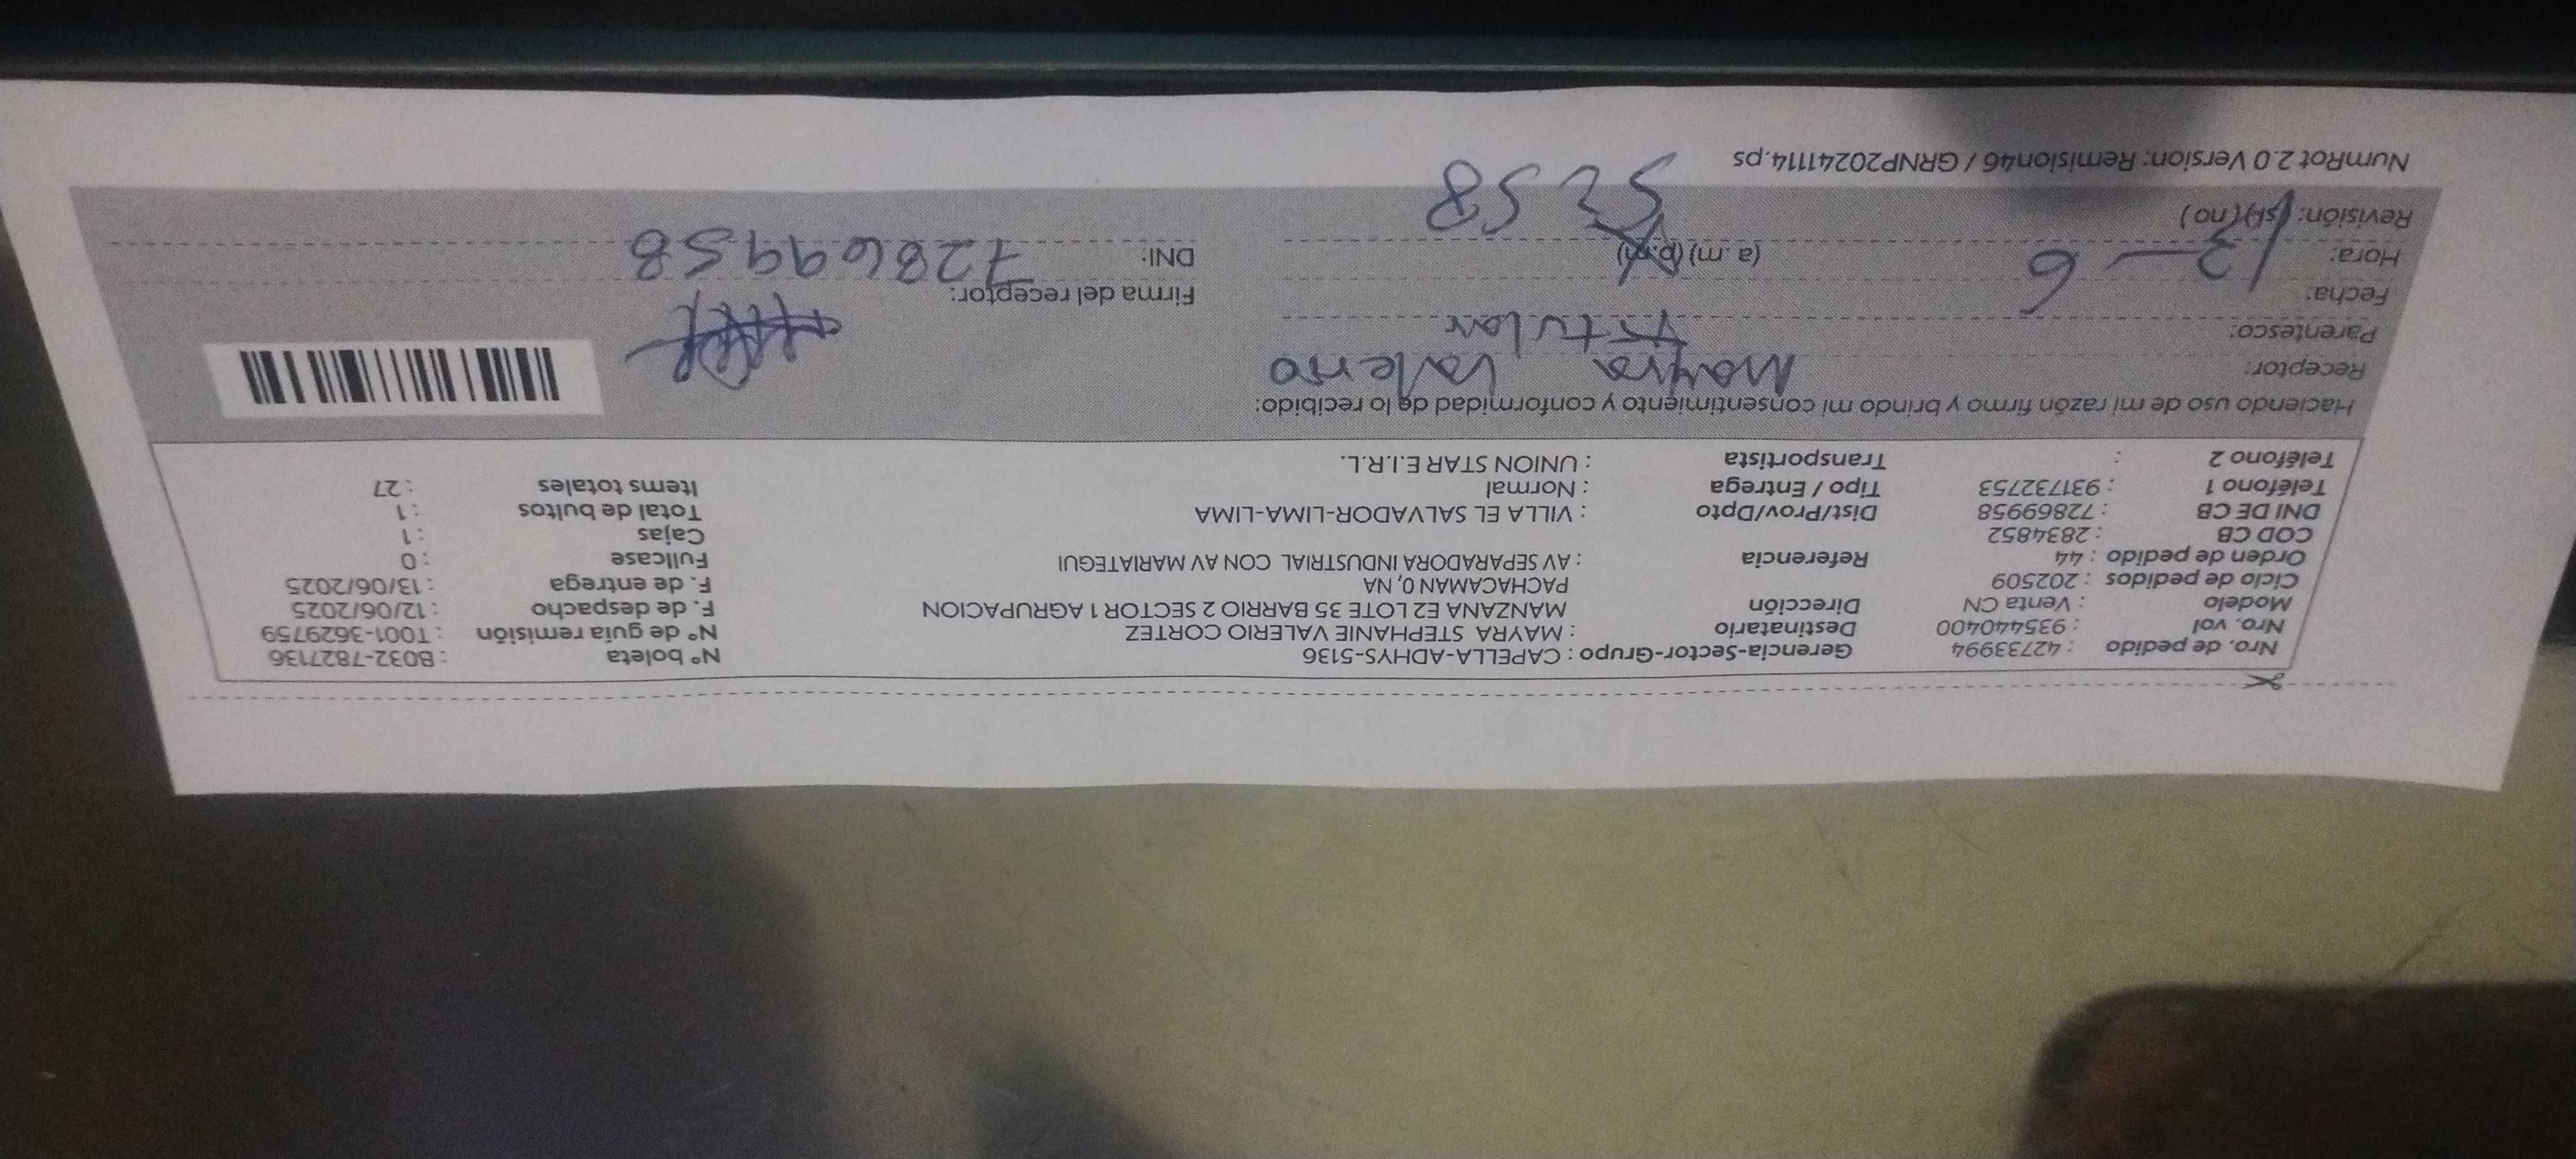 Nro. de pedido : 42733994 Gerencia-Sector-Grupo : CAPELLA-ADHYS-5136 N° boleta : B032-7827136
Nro. vol : 935440400 Destinatario : MAYRA STEPHANIE VALERIO CORTEZ N° de guía remisión : T001-3629759
Modelo : Venta CN Dirección MANZANA E2 LOTE 35 BARRIO 2 SECTOR 1 AGRUPACION F. de despacho : 12/06/2025
Ciclo de pedidos : 202509 PACHACAMAN 0, NA F. de entrega : 13/06/2025
Orden de pedido : 44 Referencia : AV SEPARADORA INDUSTRIAL CON AV MARIATEGUI Fullcase : 0
COD CB : 2834852 Cajas : 1
DNI DE CB : 72869958 Dist/Prov/Dpto : VILLA EL SALVADOR-LIMA-LIMA Total de bultos : 1
Teléfono 1 : 931732753 Tipo / Entrega : Normal Items totales : 27
Teléfono 2 : Transportista : UNION STAR E.I.R.L.
Haciendo uso de mi razón firmo y brindo mi consentimiento y conformidad de lo recibido:
Receptor: Mayra Valerio
Parentesco: Titular
Fecha: 13-6 Firma del receptor:
Hora: (a.m) (p.m) DNI: 72869958
Revisión: (si) (no) 5258
NumRot 2.0 Version: Remision46 / GRNP20241114.ps